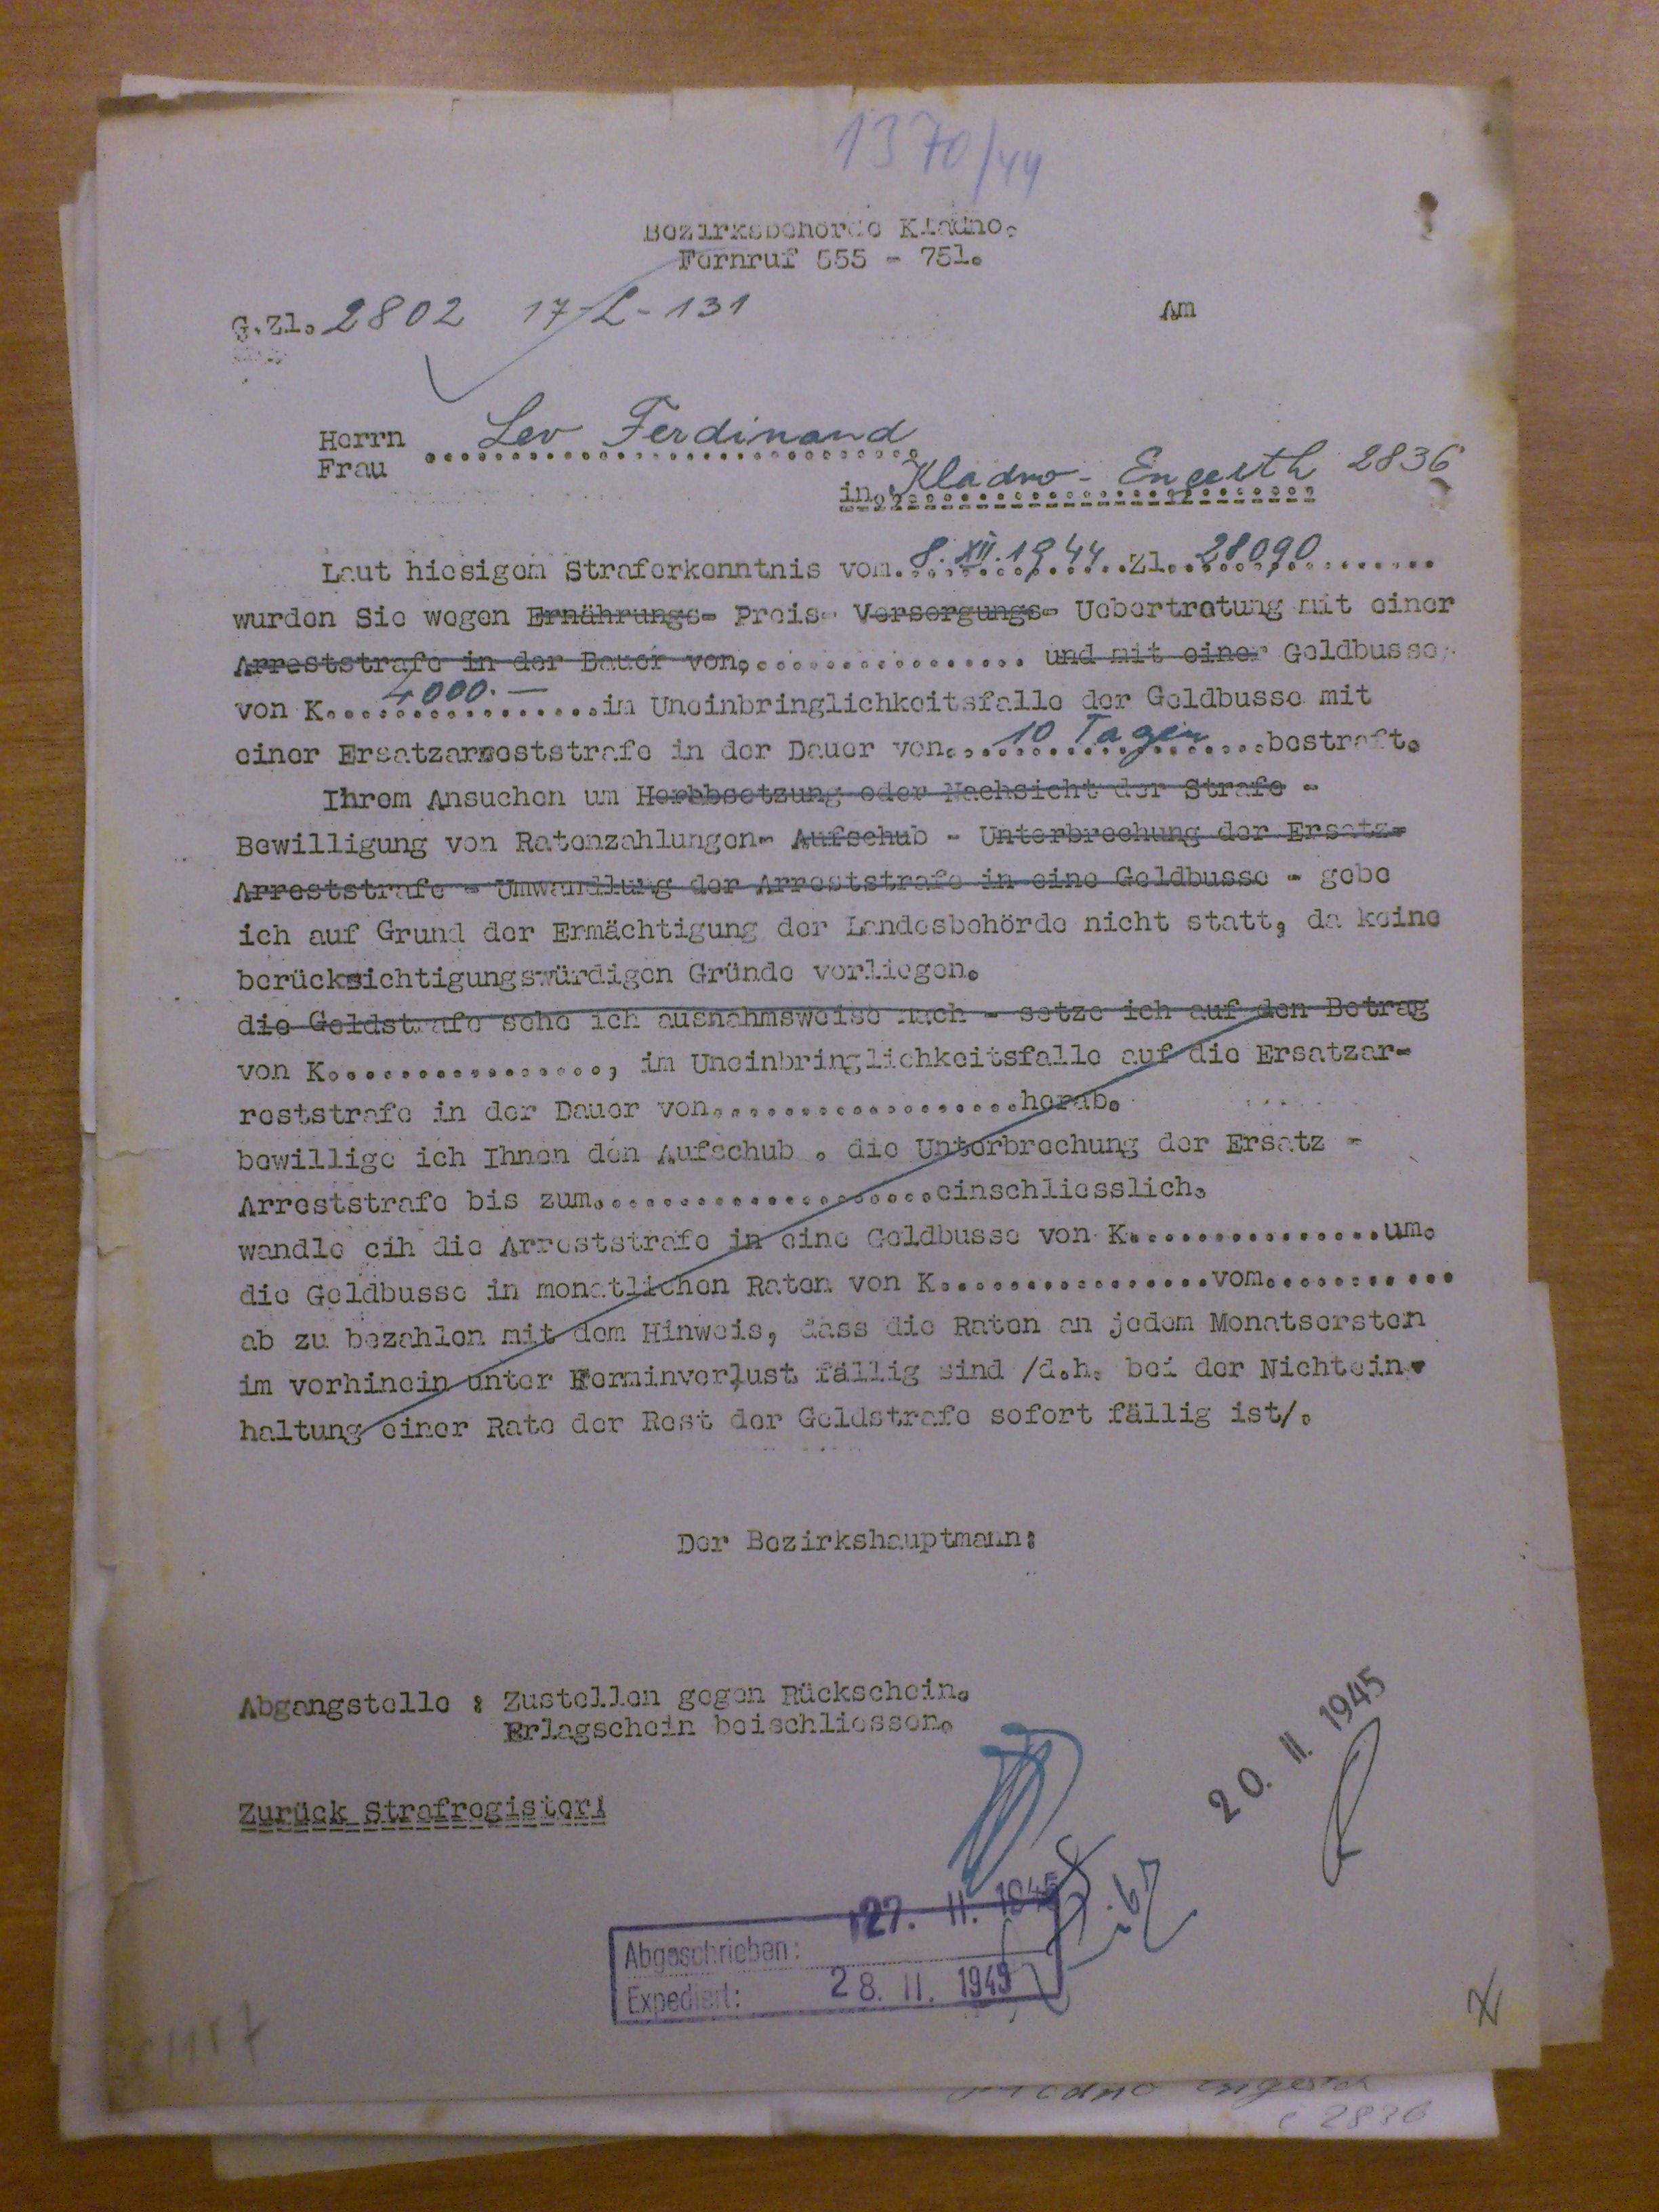 1370/44
Bezirksbehörde Kladno.
Fernruf 555 - 751.
G.Zl. 2802 17-L-131
Am
Herrn Lev Ferdinand
Frau
in Kladno - Engerth 2836
Laut hiesigem Straferkenntnis vom. 8. XII. 1944. Zl. 28090
wurden Sie wegen Ernährungs- Preis- Versorgungs- Uebertretung mit einer
Arreststrafe in der Dauer von, ................ und mit einer Geldbusse,
von K. 4000.— im Uneinbringlichkeitsfalle der Geldbusse mit
einer Ersatzarreststrafe in der Dauer von. 10 Tagen bestraft.
Ihrem Ansuchen um Herabsetzung oder Nachsicht der Strafe -
Bewilligung von Ratenzahlungen- Aufschub - Unterbrechung der Ersatz-
Arreststrafe - Umwandlung der Arreststrafe in eine Geldbusse - gebe
ich auf Grund der Ermächtigung der Landesbehörde nicht statt, da keine
berücksichtigungswürdigen Gründe vorliegen.
die Geldstrafe sehe ich ausnahmsweise nach - setze ich auf den Betrag
von K................, im Uneinbringlichkeitsfalle auf die Ersatzar-
reststrafe in der Dauer von..................herab.
bewillige ich Ihnen den Aufschub . die Unterbrechung der Ersatz -
Arreststrafe bis zum....................einschliesslich.
wandle cih die Arreststrafe in eine Geldbusse von K................um.
die Geldbusse in monatlichen Raten von K................vom............
ab zu bezahlen mit dem Hinweis, dass die Raten an jedem Monatsersten
im vorhinein unter Terminverlust fällig sind /d.h. bei der Nichtein-
haltung einer Rate der Rest der Geldstrafe sofort fällig ist/.
Der Bezirkshauptmann:
Abgangstelle : Zustellen gegen Rückschein.
Erlagschein beischliessen.
20. II. 1945
Zurück Strafregister!
27. II. 1945
Abgeschrieben:
Expediert: 28. II. 1945
Kladno Engerth
č 2836